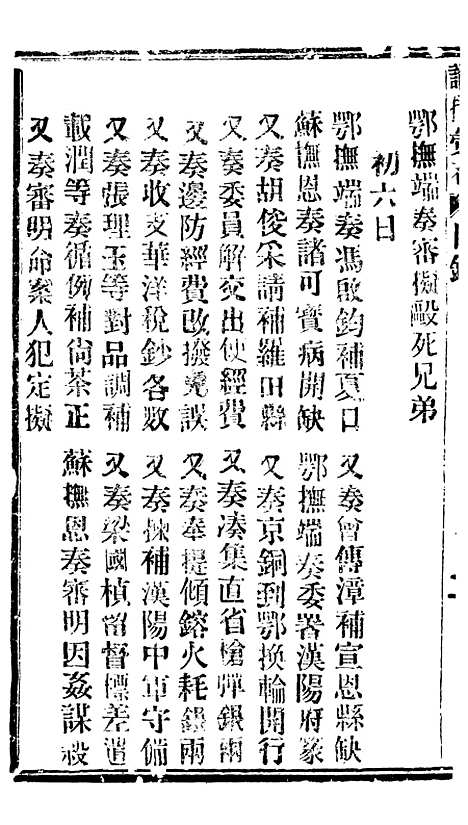 目錄
鄂撫端奏審擬毆死兄弟
初六日
鄂撫端奏馮啟鈞補夏口
又奏曾傳漳補宣恩縣缺
蘇撫恩奏諸可寶病開缺
鄂撫端奏委署漢陽府篆
又奏胡俊采請補羅田縣
又奏京銅到鄂換輪開行
又奏委員解交出使經費
又奏湊集直省槍彈銀兩
又奏邊防經費改撥竟誤
又奏奉提傾鎔火耗銀兩
又奏收支華洋稅鈔各數
又奏揀補漢陽中軍守備
又奏張理玉等對品調補
又奏梁國楨留督標差遣
載潤等奏循例補尙茶正
蘇撫恩奏審明因姦謀殺
又奏審明命案人犯定擬
二